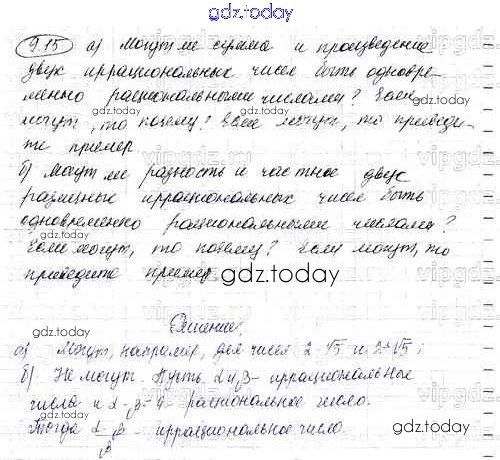 gdz.today
9.15 а) могут ли сумма и произведение
двух иррациональных чисел быть одновре-
менно рациональными числами? Если
могут, то почему? Если могут, то приведи-
те пример
б) могут ли разность и частное двух
различных иррациональных чисел быть
одновременно рациональными числами?
Если могут, то почему? Если могут, то
приведите пример
gdz.today
Решение
а) Могут, например, для чисел 2-√5 и 2+√5;
б) Не могут. Пусть α и β - иррациональные
числа и α - β = - рациональное число.
Тогда - иррациональное число